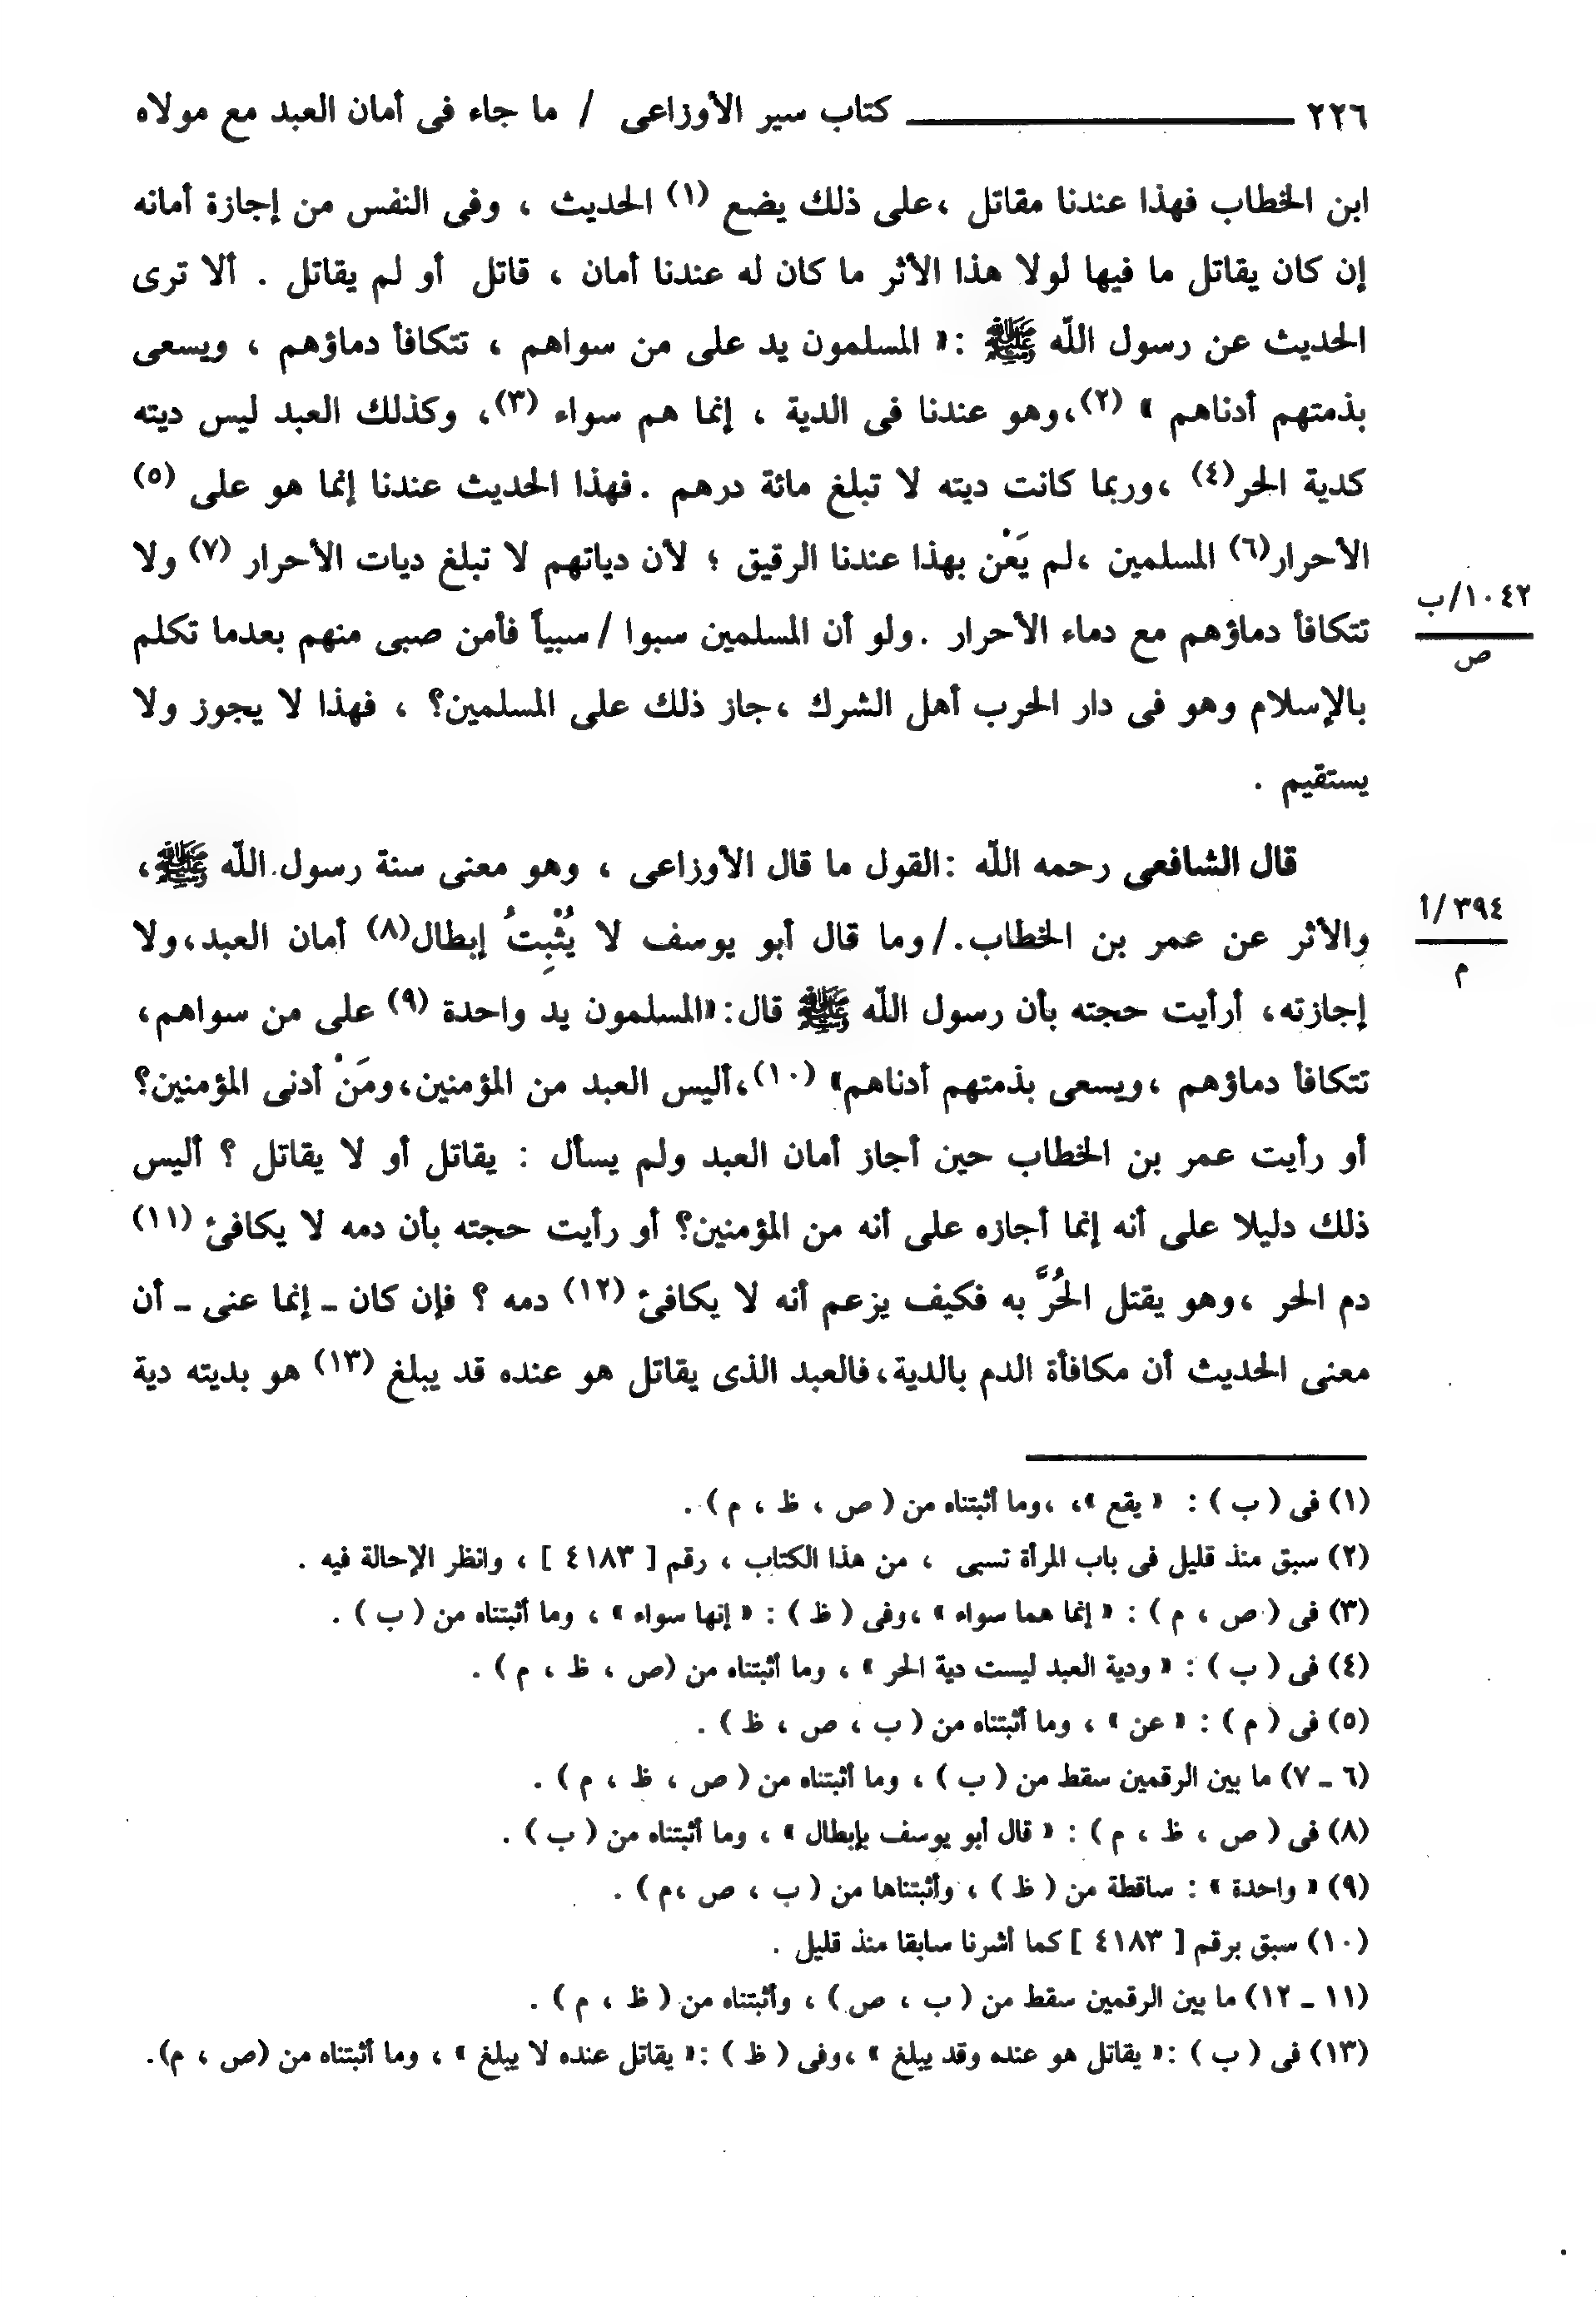 ٢٢٦ كتاب سير الأوزاعى / ما جاء فى أمان العبد مع مولاه
ابن الخطاب فهذا عندنا مقاتل ،على ذلك يضع (١) الحديث ، وفى النفس من إجازة أمانه
إن كان يقاتل ما فيها لولا هذا الأثر ما كان له عندنا أمان ، قاتل أو لم يقاتل . ألا ترى
الحديث عن رسول اللّه ﷺ :« المسلمون يد على من سواهم ، تتكافأ دماؤهم ، ويسعى
بذمتهم أدناهم » (٢)،وهو عندنا فى الدية ، إنما هم سواء (٣)، وكذلك العبد ليس ديته
كدية الحر(٤) ،وربما كانت ديته لا تبلغ مائة درهم .فهذا الحديث عندنا إنما هو على (٥)
الأحرار(٦) المسلمين ،لم يَعْن بهذا عندنا الرقيق ؛ لأن دياتهم لا تبلغ ديات الأحرار (٧) ولا
١٠٤٢/ب
تتكافأ دماؤهم مع دماء الأحرار .ولو أن المسلمين سبوا /سبياً فأمن صبى منهم بعدما تكلم
ص
بالإسلام وهو فى دار الحرب أهل الشرك ،جاز ذلك على المسلمين؟ ، فهذا لا يجوز ولا
يستقيم .
قال الشافعى رحمه اللّه :القول ما قال الأوزاعى ، وهو معنى سنة رسول اللّه ﷺ،
٣٩٤/أ
والأثر عن عمر بن الخطاب./وما قال أبو يوسف لا يُثْبِتُ إبطال(٨) أمان العبد،ولا
م
إجازته، أرأيت حجته بأن رسول اللّه ﷺ قال:«المسلمون يد واحدة (٩) على من سواهم،
تتكافأ دماؤهم ،ويسعى بذمتهم أدناهم» (١٠)،أليس العبد من المؤمنين،ومَنْ أدنى المؤمنين؟
أو رأيت عمر بن الخطاب حين أجاز أمان العبد ولم يسأل : يقاتل أو لا يقاتل ؟ أليس
ذلك دليلا على أنه إنما أجازه على أنه من المؤمنين؟ أو رأيت حجته بأن دمه لا يكافئ (١١)
دم الحر ،وهو يقتل الحُرَّ به فكيف يزعم أنه لا يكافئ (١٢) دمه ؟ فإن كان ـ إنما عنى ـ أن
معنى الحديث أن مكافأة الدم بالدية،فالعبد الذى يقاتل هو عنده قد يبلغ (١٣) هو بديته دية
(١) فى ( ب ) : « يقع »، ،وما أثبتناه من ( ص ، ظ ، م ) .
(٢) سبق منذ قليل فى باب المرأة تسبى ، من هذا الكتاب ، رقم [ ٤١٨٣ ] ، وانظر الإحالة فيه .
(٣) فى ( ص ، م ) : « إنما هما سواء » ،وفى ( ظ ) : « إنها سواء » ، وما أثبتناه من ( ب ) .
(٤) فى ( ب ) : « ودية العبد ليست دية الحر » ، وما أثبتناه من (ص ، ظ ، م ) .
(٥) فى ( م ) : « عن » ، وما أثبتناه من ( ب ، ص ، ظ ) .
(٦ ـ ٧) ما بين الرقمين سقط من ( ب ) ، وما أثبتناه من ( ص ، ظ ، م ) .
(٨) فى ( ص ، ظ ، م ) : « قال أبو يوسف بإبطال » ، وما أثبتناه من ( ب ) .
(٩) « واحدة » : ساقطة من ( ظ ) ، وأثبتناها من ( ب ، ص ،م ) .
(١٠) سبق برقم [ ٤١٨٣ ] كما أشرنا سابقا منذ قليل .
(١١ ـ ١٢) ما بين الرقمين سقط من ( ب ، ص ) ، وأثبتناه من ( ظ ، م ) .
(١٣) فى ( ب ) :« يقاتل هو عنده وقد يبلغ » ،وفى ( ظ ) :« يقاتل عنده لا يبلغ » ، وما أثبتناه من (ص ، م).